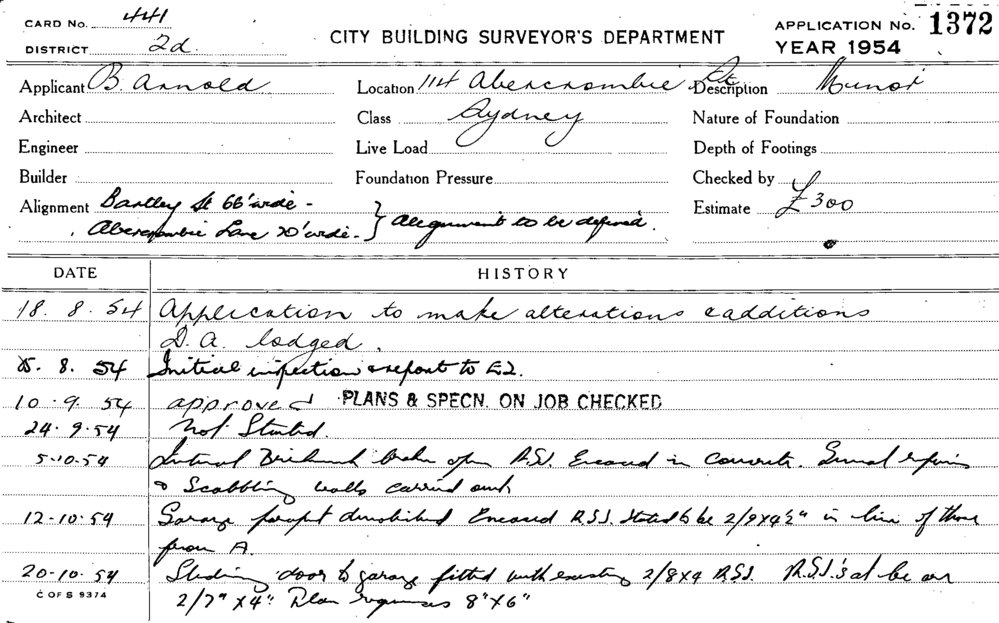 CARD No. 441
DISTRICT 2d.
CITY BUILDING SURVEYOR'S DEPARTMENT
APPLICATION No. 1372
YEAR 1954
Applicant B. Arnold Location 114 Abercrombie St. Description Minor
Architect Class Sydney Nature of Foundation
Engineer Live Load Depth of Footings
Builder Foundation Pressure Checked by
Alignment Bartley St 66' wide - Estimate £300
Abercrombie Lane 20' wide - } Alignment to be defined.
DATE HISTORY
18. 8. 54 Application to make alterations & additions
D.A. lodged.
8. 54 Initial inspection & report to
10. 9. 54 approved PLANS & SPECN. ON JOB CHECKED
24. 9. 54 Not Started.
5-10-54 Internal Brickwork R.S.J. Encased in concrete. repairs
& Scabbling walls carried out
12-10-54 Garage parapet demolished Encased R.S.J. stated to be 2/9x4½" in of those
from A.
20-10-54 Sliding door to garage fitted with existing 2/8x4 R.S.J. R.S.J.'s at
2/7" x 4" Plan requires 8" x 6"
C OF S 9374